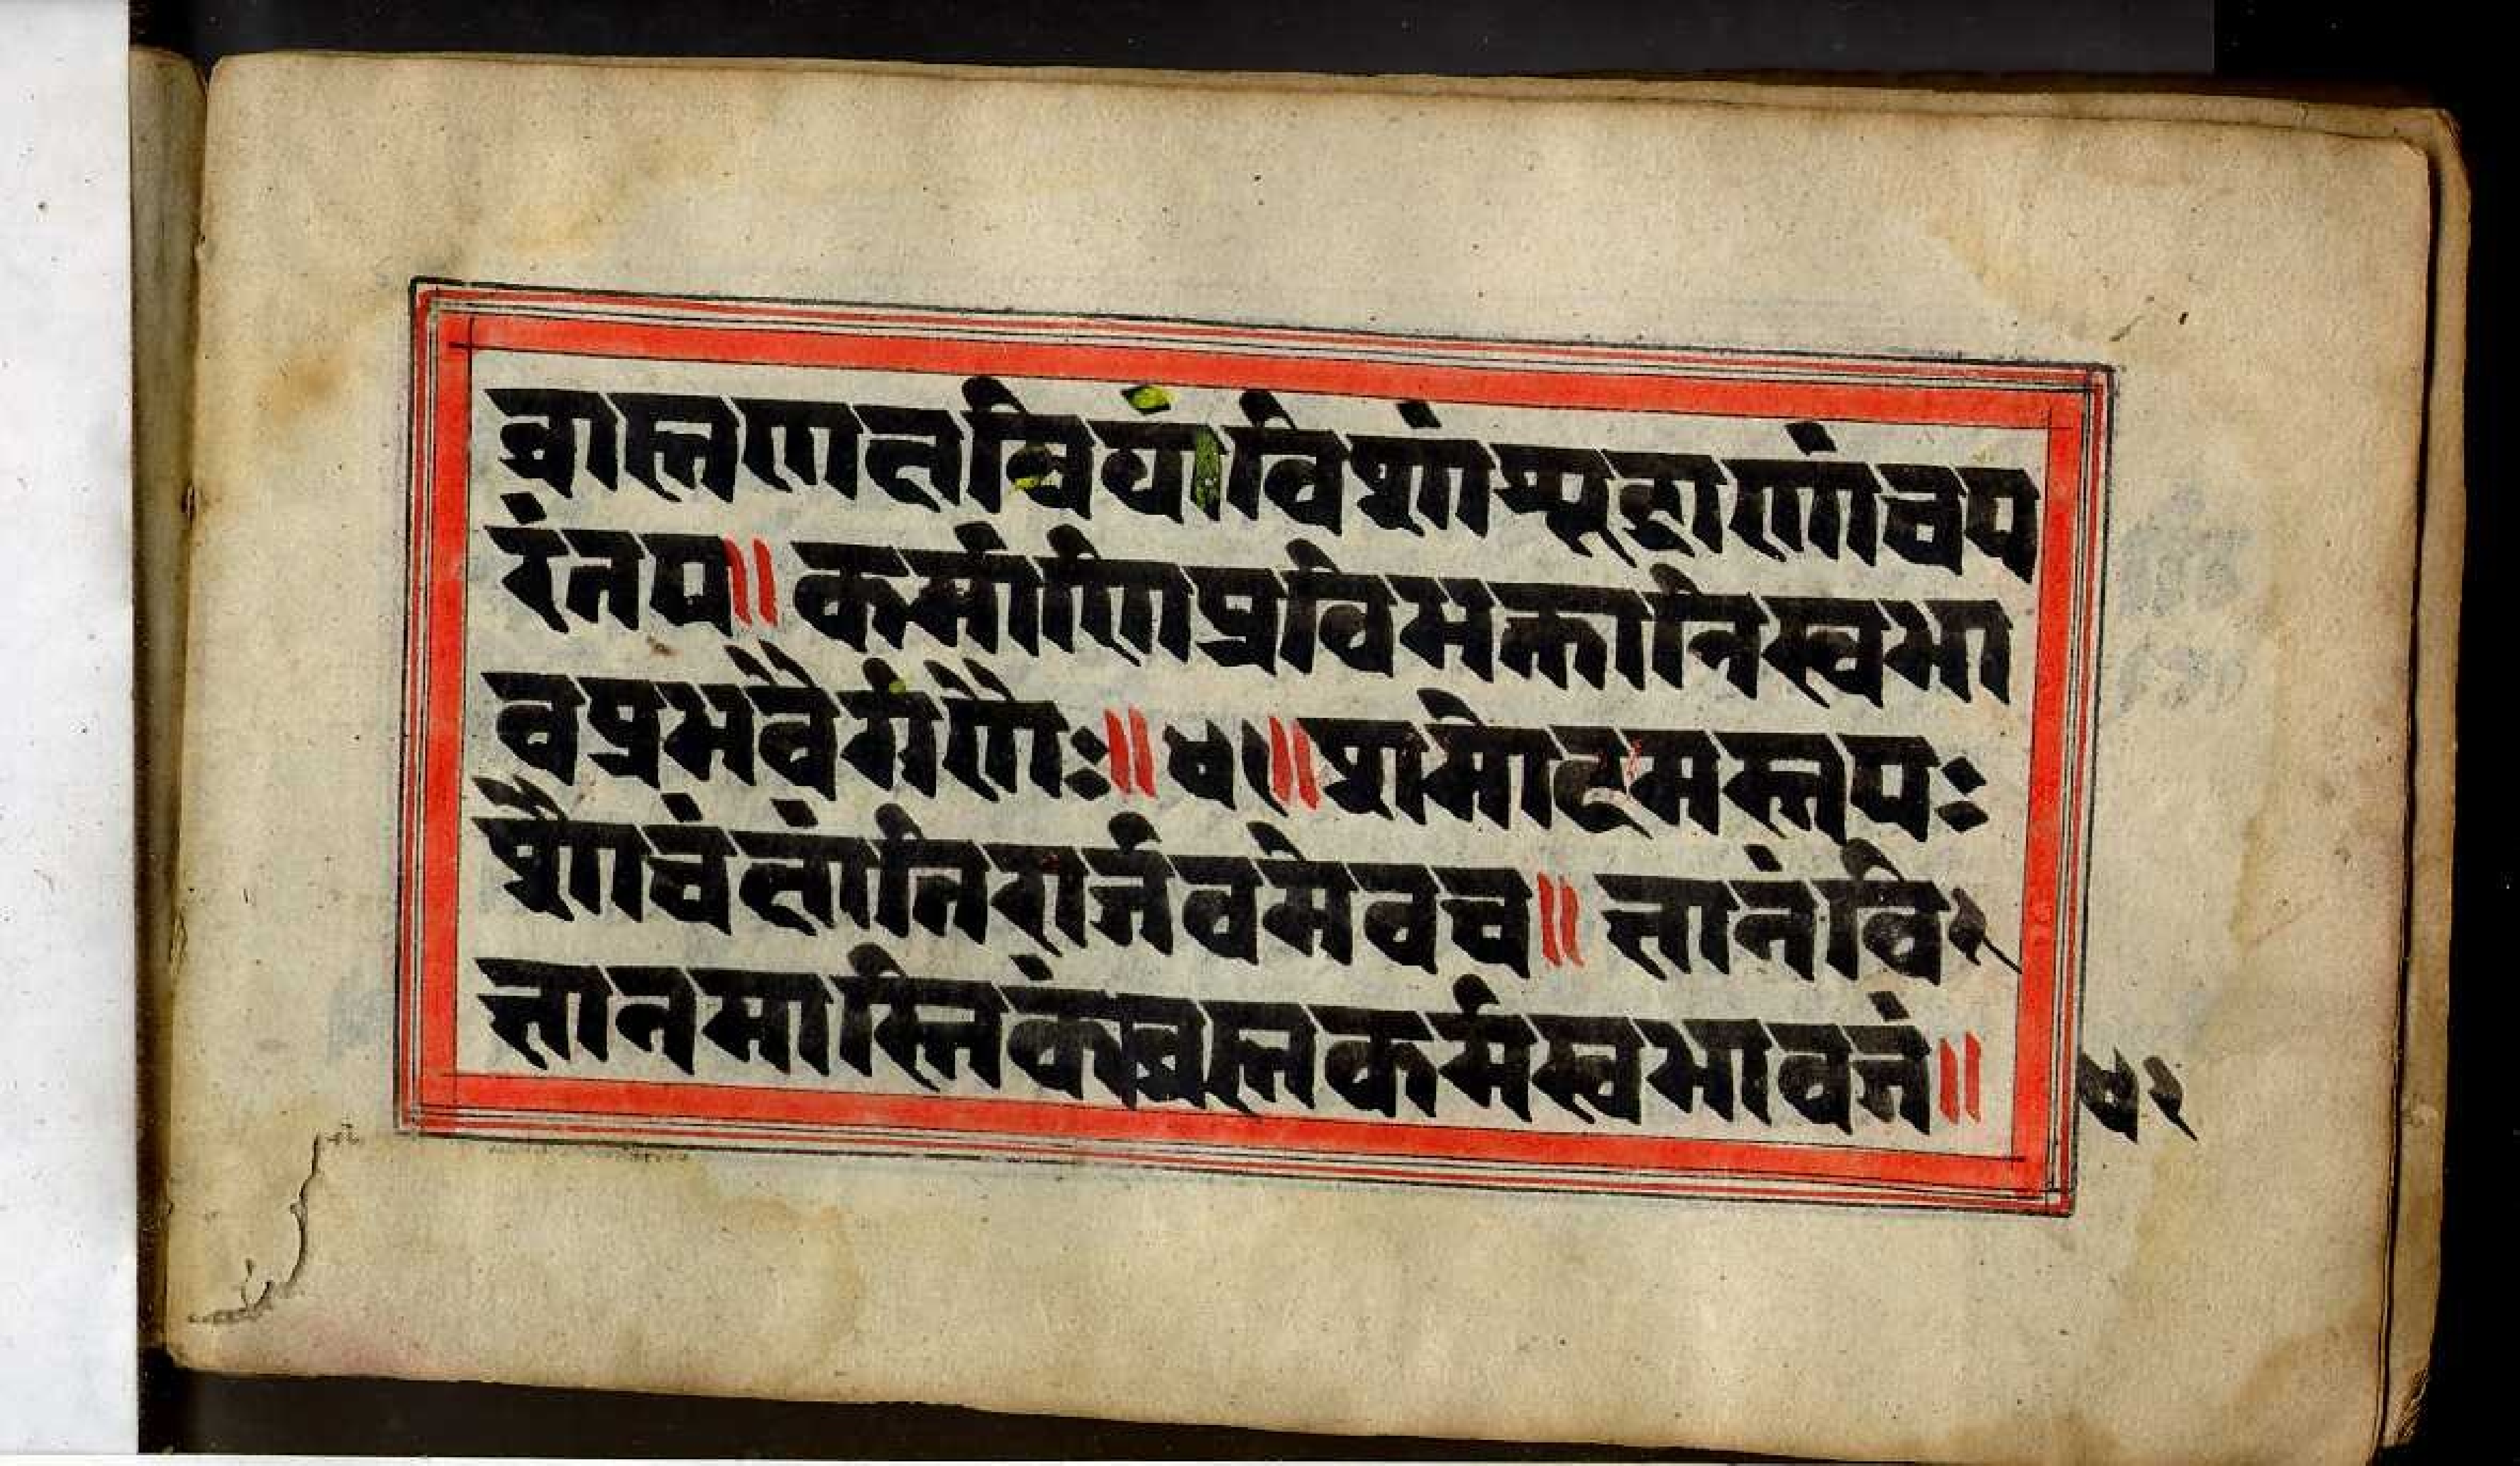 ब्राह्मणक्षत्रियविशांशूद्राणांचप
रंतप॥कर्माणिप्रविभक्तानिस्वभा
वप्रभवैर्गुणैः॥४१॥शमोदमस्तपः
शौचंक्षांतिरार्जवमेवच॥ज्ञानंवि
ज्ञानमास्तिकंब्रह्मकर्मस्वभावजं॥
४२